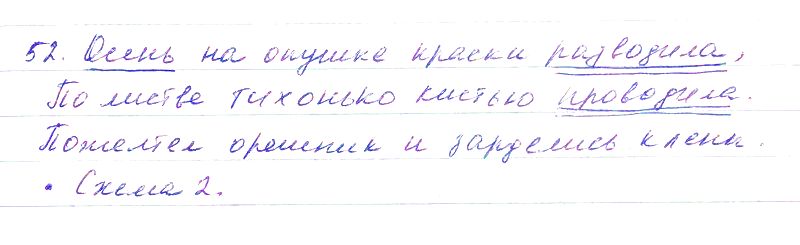 52. Осень на опушке краски разводила,
По листве тихонько кистью проводила.
Пожелтел орешник и зарделись клены.
• Схема 2.